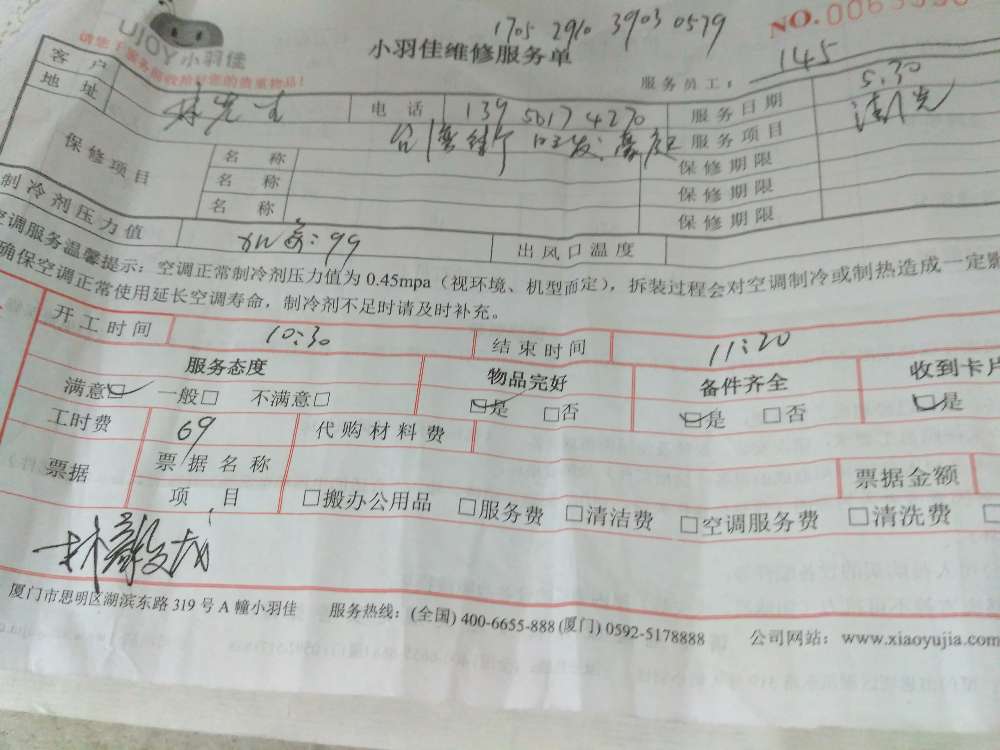 1705 2910 3903 0579
NO.
UJOY 小羽佳
小羽佳维修服务单
服务员工: 145
客户 林先生 电话 139 5017 4270 服务日期 5.30
地址 服务项目 清洗
保修项目 名称 保修期限
名称 保修期限
名称 保修期限
制冷剂压力值 99 出风口温度
空调服务温馨提示:空调正常制冷剂压力值为 0.45mpa (视环境、机型而定),拆装过程会对空调制冷或制热造成一定影
确保空调正常使用延长空调寿命,制冷剂不足时请及时补充。
开工时间 10:30 结束时间 11:20
服务态度 物品完好 备件齐全 收到卡片
满意☑ 一般□ 不满意□ ☑是 □否 ☑是 □否 ☑是
工时费 69 代购材料费
票据 票据名称 票据金额
项目 □搬办公用品 □服务费 □清洁费 □空调服务费 □清洗费
厦门市思明区湖滨东路 319 号 A 幢小羽佳 服务热线:(全国) 400-6655-888 (厦门) 0592-5178888 公司网站:www.xiaoyujia.com